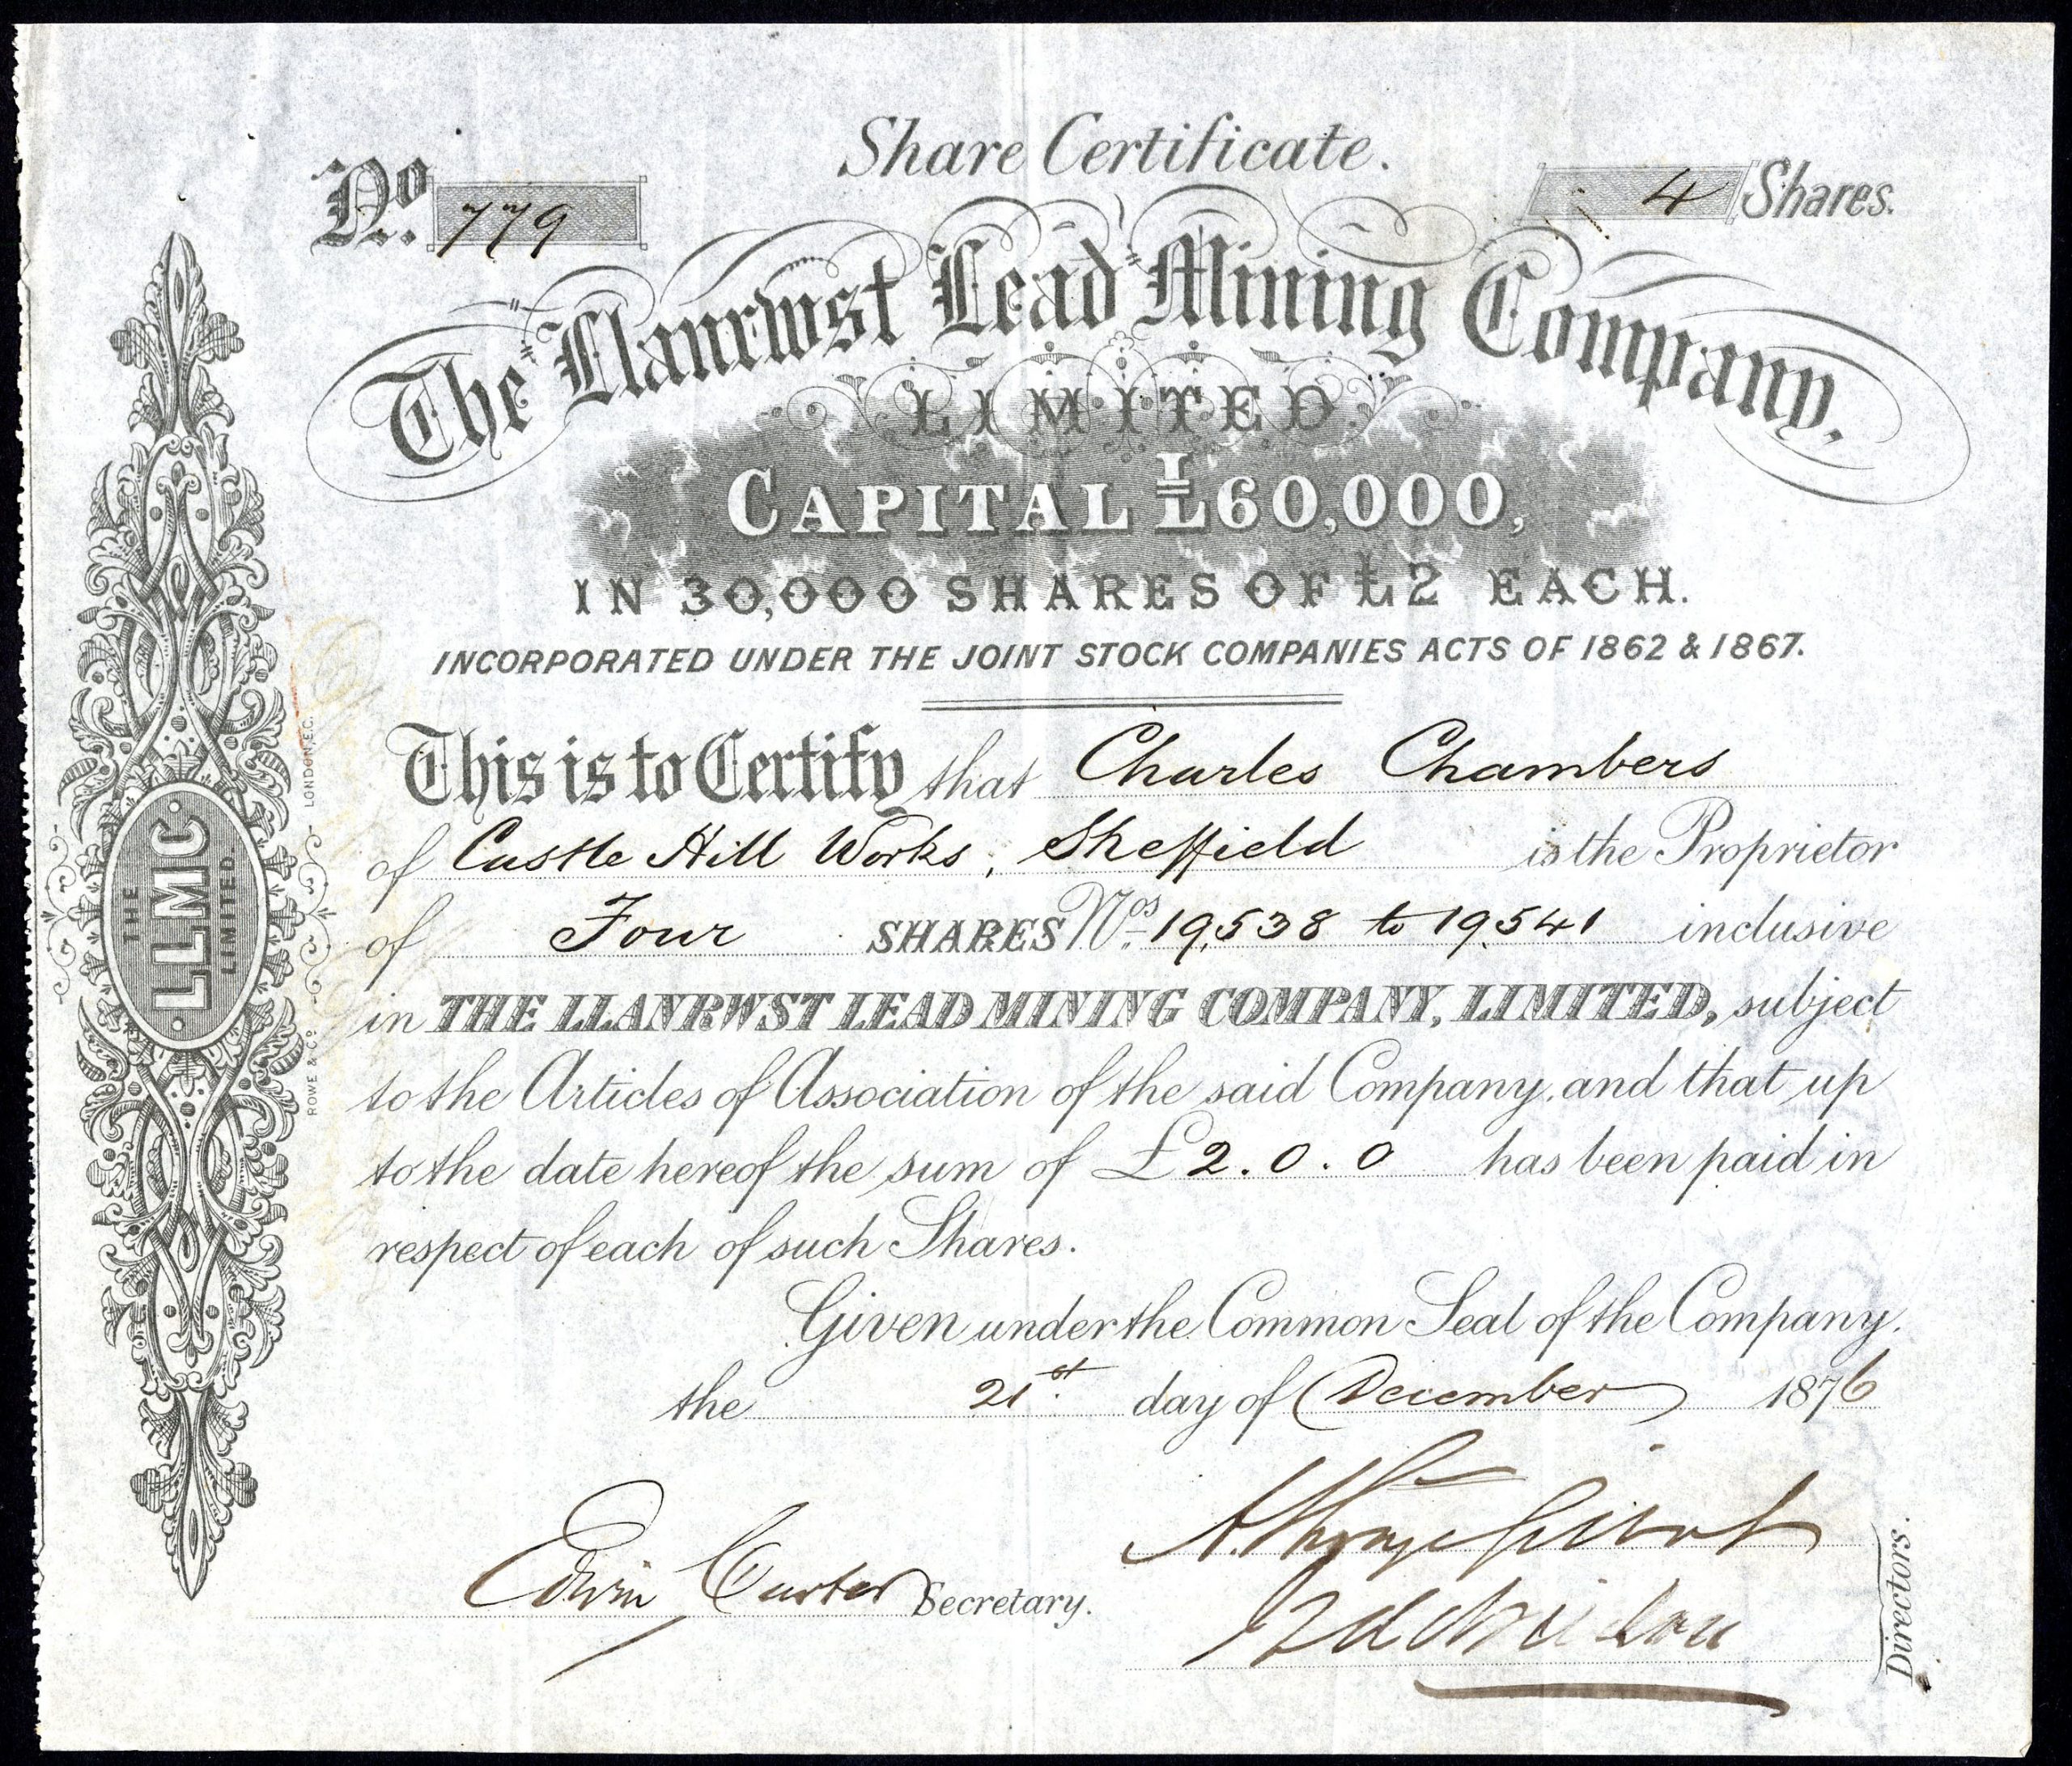 Share Certificate.
No. 779
4 Shares.
The Llanrwst Lead Mining Company,
LIMITED.
CAPITAL £60,000,
IN 30,000 SHARES OF £2 EACH.
INCORPORATED UNDER THE JOINT STOCK COMPANIES ACTS OF 1862 & 1867.
This is to Certify that Charles Chambers
of Castle Hill Works, Sheffield is the Proprietor
of Four SHARES Nos. 19,538 to 19,541 inclusive
in THE LLANRWST LEAD MINING COMPANY, LIMITED, subject
to the Articles of Association of the said Company, and that up
to the date hereof the sum of £2.0.0 has been paid in
respect of each of such Shares.
Given under the Common Seal of the Company.
the 21st. day of December 1876
Edwin Carter Secretary.
Directors.
THE
LLMC
LIMITED.
ROWE & Co. LONDON, E.C.